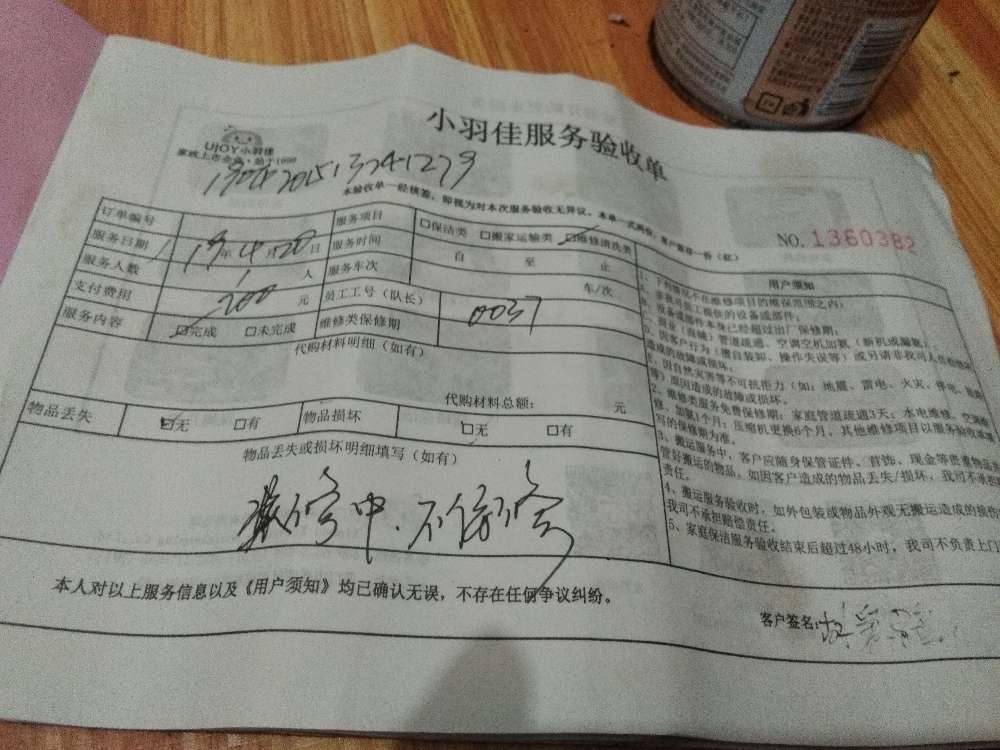 小羽佳服务验收单
UJOY小羽佳
家政上市企业·始于1999
本验收单一经核签，即视为对本次服务验收无异议。本单一式两份，客户留存一份（红）
NO. 1360382
订单编号 服务项目 □保洁类 □搬家运输类 ☑维修清洗类 用户须知
服务日期 19年4月20日 服务时间 自 至 止
服务人数 1人 服务车次 车/次
支付费用 200元 员工工号（队长） 0037
服务内容 ☑完成 □未完成 维修类保修期
代购材料明细（如有）
代购材料总额： 元
物品丢失 ☑无 □有 物品损坏 □无 □有
物品丢失或损坏明细填写（如有）
中.不
1、下列情况不在维修项目的维保范围之内：
A、非我司员工提供的设备或部件；
B、设备或部件本身已经超过出厂保修期；
C、商业（店铺）管道疏通、空调空机加氨（新机或漏氨）
D、因客户行为（擅自装卸、操作失误等）或另请非我司人员检修
造成的故障或损坏；
E、因自然灾害等不可抗拒力（如：地震、雷电、火灾、停电、
等）原因造成的故障或损坏。
2、维修类服务免费保修期：家庭管道疏通3天；水电维修、空调
修、加氨1个月；压缩机更换6个月，其他维修项目以服务验收单
写的保修期为准。
3、搬运服务中，客户应随身保管证件、首饰、现金等贵重物品
管好搬运的物品，如因客户造成的物品丢失/损坏，我司不承担
责任。
4、搬运服务验收时，如外包装或物品外观无搬运造成的损伤
我司不承担赔偿责任。
5、家庭保洁服务验收结束后超过48小时，我司不负责上门
本人对以上服务信息以及《用户须知》均已确认无误，不存在任何争议纠纷。
客户签名：